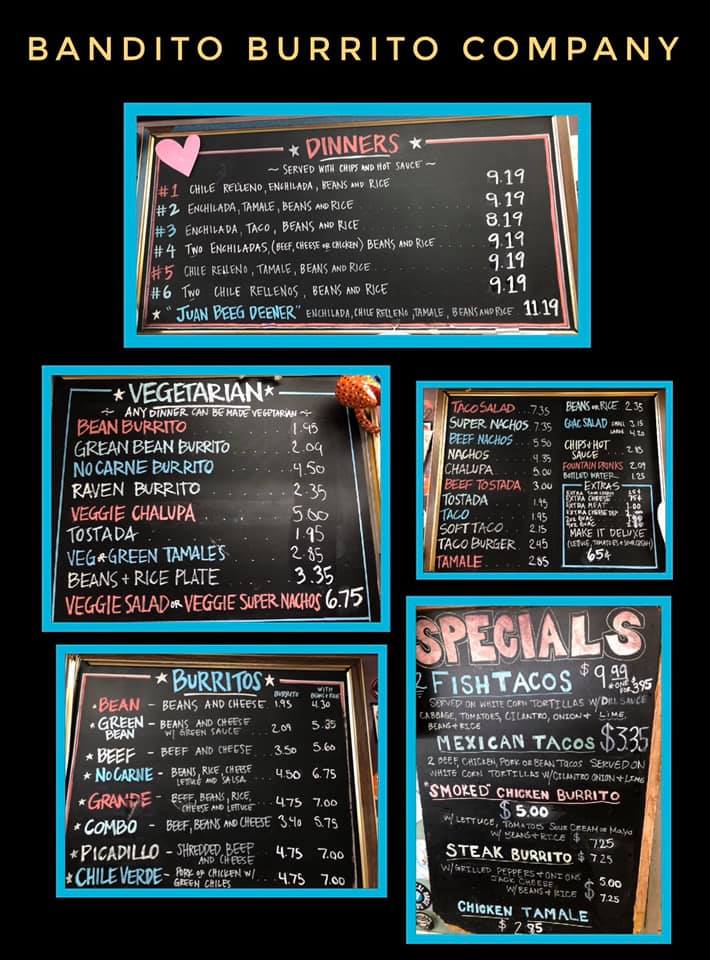 BANDITO BURRITO COMPANY
DINNERS
~ SERVED WITH CHIPS AND HOT SAUCE ~
#1 CHILE RELLENO, ENCHILADA, BEANS AND RICE 9.19
#2 ENCHILADA, TAMALE, BEANS AND RICE 9.19
#3 ENCHILADA, TACO, BEANS AND RICE 8.19
#4 TWO ENCHILADAS, (BEEF, CHEESE OR CHICKEN) BEANS AND RICE 9.19
#5 CHILE RELLENO, TAMALE, BEANS AND RICE 9.19
#6 TWO CHILE RELLENOS, BEANS AND RICE 9.19
"JUAN BEEG DEENER" ENCHILADA, CHILE RELLENO, TAMALE, BEANS AND RICE 11.19
VEGETARIAN
~ ANY DINNER CAN BE MADE VEGETARIAN ~
BEAN BURRITO 1.95
GREAN BEAN BURRITO 2.09
NO CARNE BURRITO 4.50
RAVEN BURRITO 2.35
VEGGIE CHALUPA 5.00
TOSTADA 1.95
VEG*GREEN TAMALES 2.85
BEANS + RICE PLATE 3.35
VEGGIE SALAD OR VEGGIE SUPER NACHOS 6.75
TACO SALAD 7.35
SUPER NACHOS 7.35
BEEF NACHOS 5.50
NACHOS 4.35
CHALUPA 5.00
BEEF TOSTADA 3.00
TOSTADA 1.95
TACO 1.95
SOFT TACO 2.15
TACO BURGER 2.45
TAMALE 2.85
BEANS OR RICE 2.35
GUAC SALAD SMALL 3.15
LARGE 4.20
CHIPS + HOT
SAUCE 2.85
FOUNTAIN DRINKS 2.09
BOTTLED WATER 1.25
EXTRAS
EXTRA SOUR CREAM
EXTRA CHEESE
EXTRA MEAT 1.00
EXTRA CHEESE DIP
MAKE IT DELUXE
(LETTUCE, TOMATOES + SOUR CREAM)
65¢
BURRITOS
BURRITO WITH BEANS + RICE
BEAN - BEANS AND CHEESE 1.95 4.30
GREEN BEAN - BEANS AND CHEESE W/ GREEN SAUCE 2.09 5.35
BEEF - BEEF AND CHEESE 3.50 5.60
NO CARNE - BEANS, RICE, CHEESE LETTUCE AND SALSA 4.50 6.75
GRANDE - BEEF, BEANS, RICE, CHEESE AND LETTUCE 4.75 7.00
COMBO - BEEF, BEANS AND CHEESE 3.40 5.75
PICADILLO - SHREDDED BEEF AND CHEESE 4.75 7.00
CHILE VERDE - PORK OR CHICKEN W/ GREEN CHILES 4.75 7.00
SPECIALS
2 FISH TACOS $9.99
*ONE FOR 3.95
SERVED ON WHITE CORN TORTILLAS W/ DILL SAUCE
CABBAGE, TOMATOES, CILANTRO, ONION + LIME,
BEANS + RICE
MEXICAN TACOS $3.35
2 BEEF, CHICKEN, PORK OR BEAN TACOS SERVED ON
WHITE CORN TORTILLAS W/ CILANTRO ONION + LIME
"SMOKED" CHICKEN BURRITO
$5.00
W/ LETTUCE, TOMATOES SOUR CREAM OR MAYO
W/ BEANS + RICE $7.25
STEAK BURRITO $7.25
W/ GRILLED PEPPERS + ONIONS
JACK CHEESE $5.00
W/ BEANS + RICE $7.25
CHICKEN TAMALE
$2.85